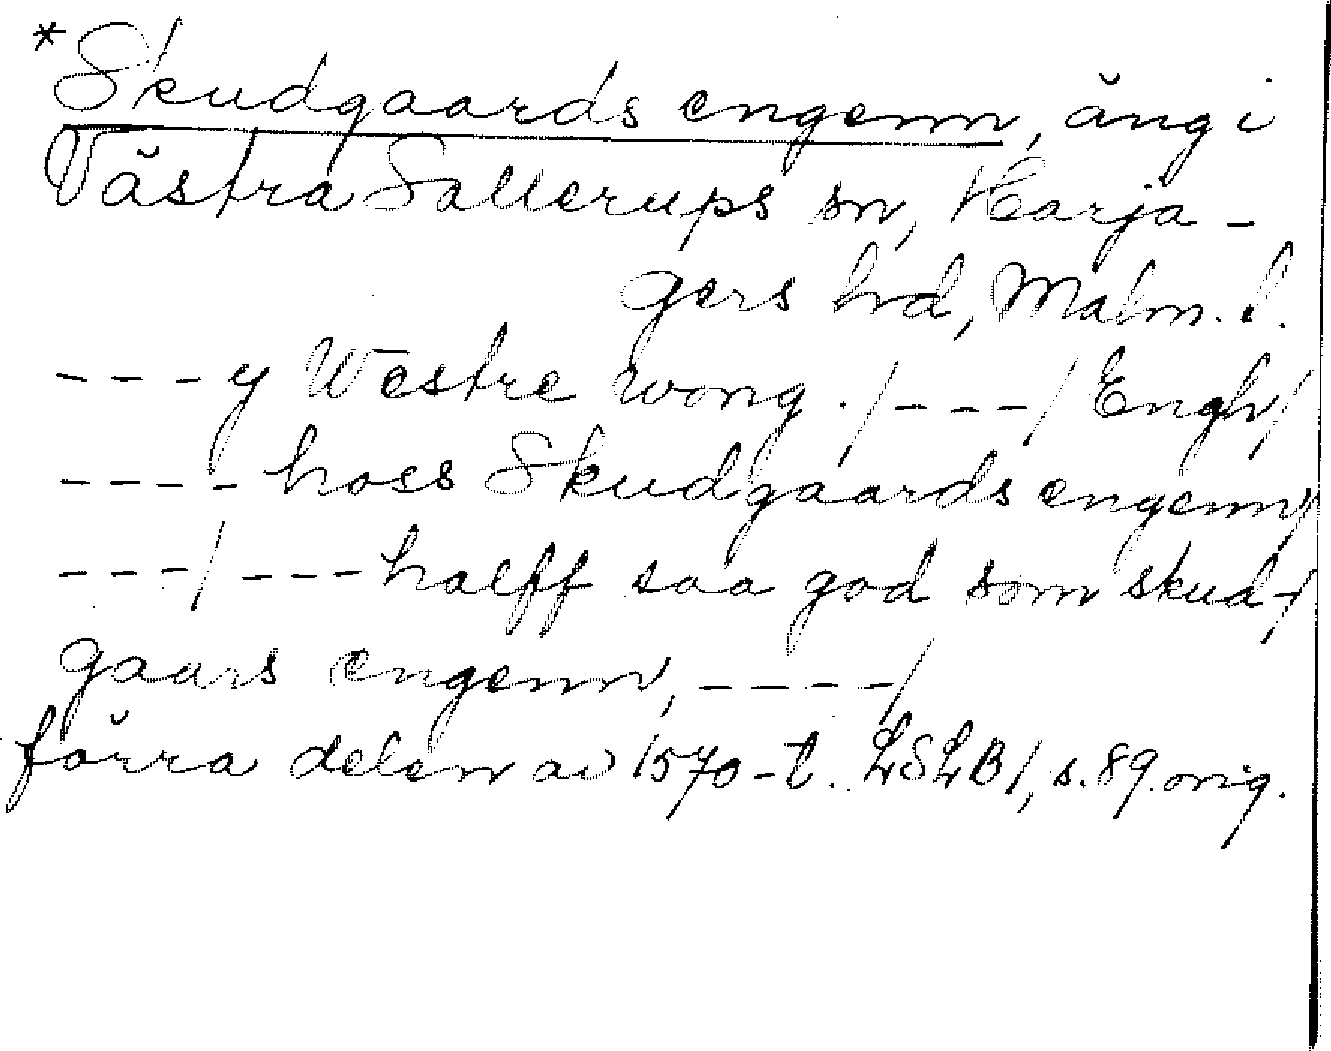 *Skudgaards engenn, äng i
Västra Sallerups sn, Harja-
gers hd, Malm. l.
- - - y Westre wong ./ - - - / Engh/
- - - - hoss Skudgaards engenn/
- - - / - - - halff saa god som skud-/
gaars engenn, - - - - /
förra delen av 1570-t. LSLB1, s. 89. orig.